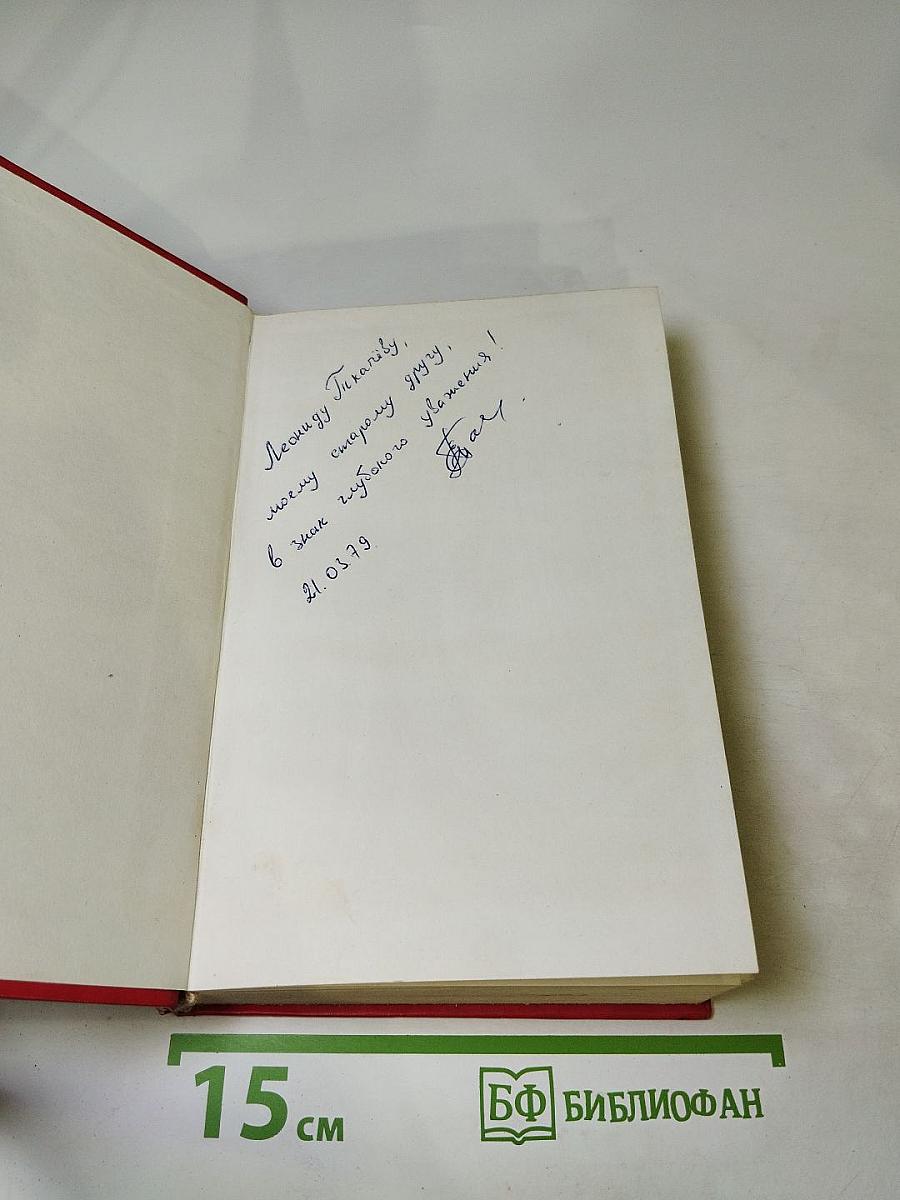 Леониду Ткачёву,
моему старому другу,
в знак глубокого уважения!
21.03.79
15 см
БФ БИБЛИОФАН